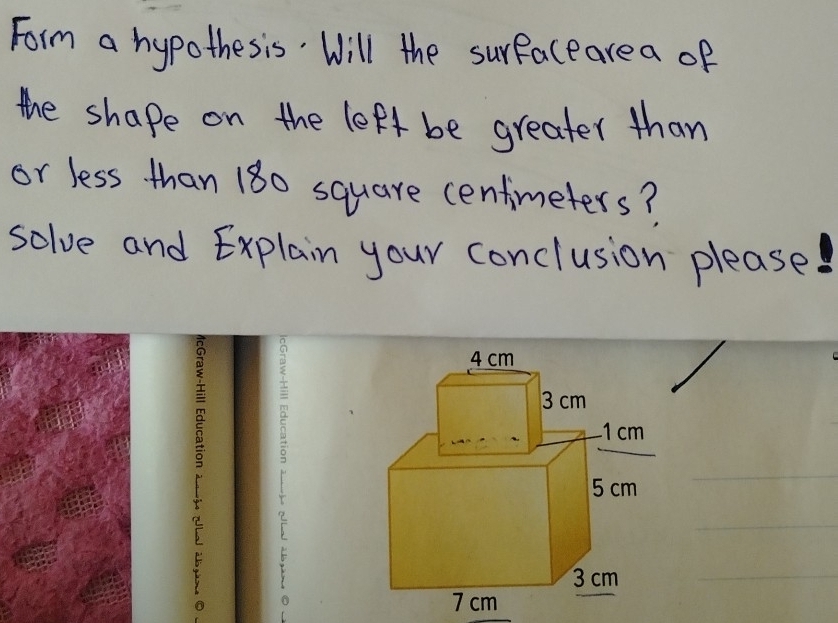 Form a hypothesis. Will the surface area of
the shape on the left be greater than
or less than 180 square centimeters?
Solve and Explain your conclusion please!
McGraw-Hill Education محفوظة لصالح مؤسسة ©
cGraw-Hill Education محفوظة لصالح مؤسسة ©
4 cm
3 cm
1 cm
5 cm
3 cm
7 cm